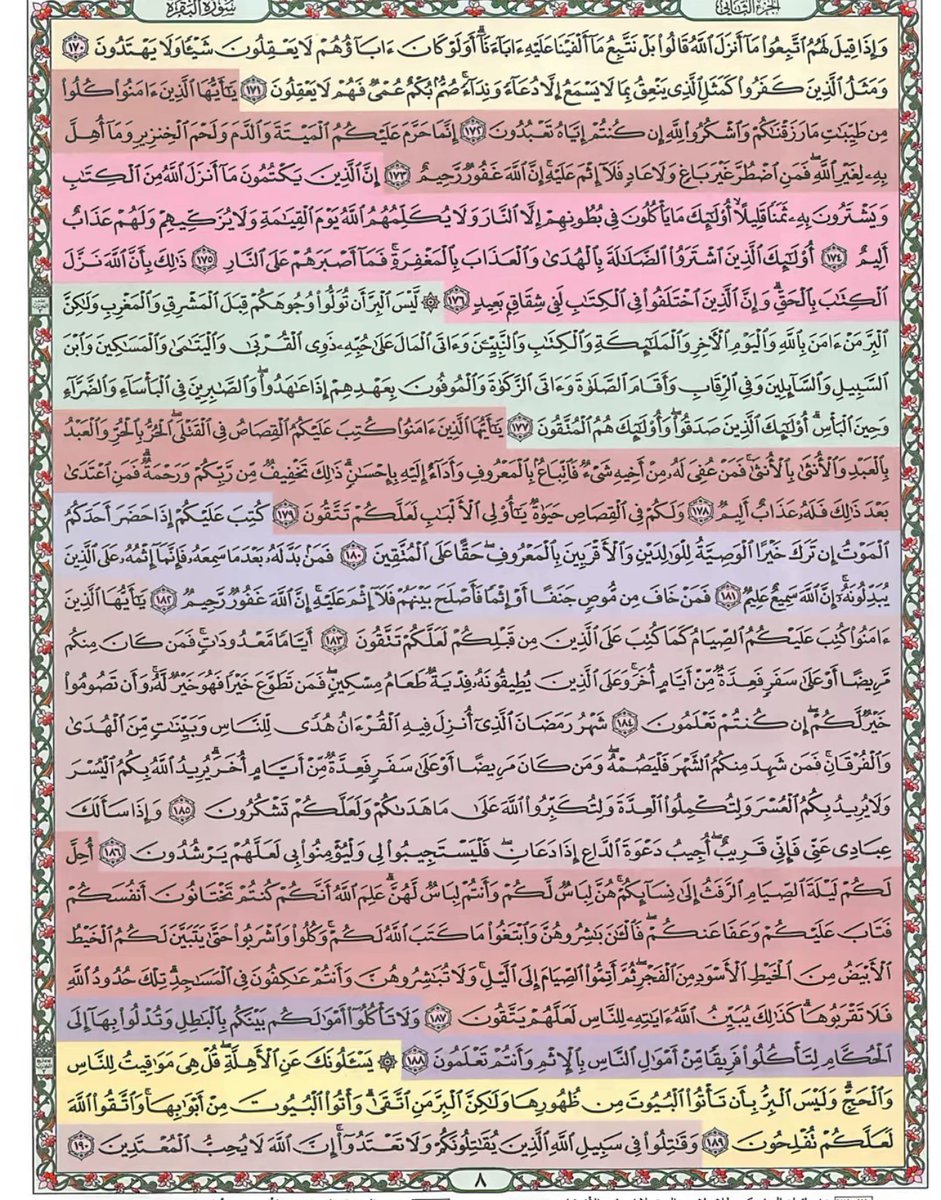 الجزء الثاني
سورة البقرة
وَإِذَا قِيلَ لَهُمُ ٱتَّبِعُوا۟ مَآ أَنزَلَ ٱللَّهُ قَالُوا۟ بَلْ نَتَّبِعُ مَآ أَلْفَيْنَا عَلَيْهِ ءَابَآءَنَآ ۗ أَوَلَوْ كَانَ ءَابَآؤُهُمْ لَا يَعْقِلُونَ شَيْـًٔا وَلَا يَهْتَدُونَ ١٧٠
وَمَثَلُ ٱلَّذِينَ كَفَرُوا۟ كَمَثَلِ ٱلَّذِى يَنْعِقُ بِمَا لَا يَسْمَعُ إِلَّا دُعَآءً وَنِدَآءً ۚ صُمٌّۢ بُكْمٌ عُمْىٌ فَهُمْ لَا يَعْقِلُونَ ١٧١ يَـٰٓأَيُّهَا ٱلَّذِينَ ءَامَنُوا۟ كُلُوا۟
مِن طَيِّبَـٰتِ مَا رَزَقْنَـٰكُمْ وَٱشْكُرُوا۟ لِلَّهِ إِن كُنتُمْ إِيَّاهُ تَعْبُدُونَ ١٧٢ إِنَّمَا حَرَّمَ عَلَيْكُمُ ٱلْمَيْتَةَ وَٱلدَّمَ وَلَحْمَ ٱلْخِنزِيرِ وَمَآ أُهِلَّ
بِهِۦ لِغَيْرِ ٱللَّهِ ۖ فَمَنِ ٱضْطُرَّ غَيْرَ بَاغٍ وَلَا عَادٍ فَلَآ إِثْمَ عَلَيْهِ ۚ إِنَّ ٱللَّهَ غَفُورٌ رَّحِيمٌ ١٧٣ إِنَّ ٱلَّذِينَ يَكْتُمُونَ مَآ أَنزَلَ ٱللَّهُ مِنَ ٱلْكِتَـٰبِ
وَيَشْتَرُونَ بِهِۦ ثَمَنًا قَلِيلًا ۙ أُو۟لَـٰٓئِكَ مَا يَأْكُلُونَ فِى بُطُونِهِمْ إِلَّا ٱلنَّارَ وَلَا يُكَلِّمُهُمُ ٱللَّهُ يَوْمَ ٱلْقِيَـٰمَةِ وَلَا يُزَكِّيهِمْ وَلَهُمْ عَذَابٌ
أَلِيمٌ ١٧٤ أُو۟لَـٰٓئِكَ ٱلَّذِينَ ٱشْتَرَوُا۟ ٱلضَّلَـٰلَةَ بِٱلْهُدَىٰ وَٱلْعَذَابَ بِٱلْمَغْفِرَةِ ۚ فَمَآ أَصْبَرَهُمْ عَلَى ٱلنَّارِ ١٧٥ ذَٰلِكَ بِأَنَّ ٱللَّهَ نَزَّلَ
ٱلْكِتَـٰبَ بِٱلْحَقِّ ۗ وَإِنَّ ٱلَّذِينَ ٱخْتَلَفُوا۟ فِى ٱلْكِتَـٰبِ لَفِى شِقَاقٍۭ بَعِيدٍ ١٧٦ ۞ لَّيْسَ ٱلْبِرَّ أَن تُوَلُّوا۟ وُجُوهَكُمْ قِبَلَ ٱلْمَشْرِقِ وَٱلْمَغْرِبِ وَلَـٰكِنَّ
ٱلْبِرَّ مَنْ ءَامَنَ بِٱللَّهِ وَٱلْيَوْمِ ٱلْـَٔاخِرِ وَٱلْمَلَـٰٓئِكَةِ وَٱلْكِتَـٰبِ وَٱلنَّبِيِّـۧنَ وَءَاتَى ٱلْمَالَ عَلَىٰ حُبِّهِۦ ذَوِى ٱلْقُرْبَىٰ وَٱلْيَتَـٰمَىٰ وَٱلْمَسَـٰكِينَ وَٱبْنَ
ٱلسَّبِيلِ وَٱلسَّآئِلِينَ وَفِى ٱلرِّقَابِ وَأَقَامَ ٱلصَّلَوٰةَ وَءَاتَى ٱلزَّكَوٰةَ وَٱلْمُوفُونَ بِعَهْدِهِمْ إِذَا عَـٰهَدُوا۟ ۖ وَٱلصَّـٰبِرِينَ فِى ٱلْبَأْسَآءِ وَٱلضَّرَّآءِ
وَحِينَ ٱلْبَأْسِ ۗ أُو۟لَـٰٓئِكَ ٱلَّذِينَ صَدَقُوا۟ ۖ وَأُو۟لَـٰٓئِكَ هُمُ ٱلْمُتَّقُونَ ١٧٧ يَـٰٓأَيُّهَا ٱلَّذِينَ ءَامَنُوا۟ كُتِبَ عَلَيْكُمُ ٱلْقِصَاصُ فِى ٱلْقَتْلَى ۖ ٱلْحُرُّ بِٱلْحُرِّ وَٱلْعَبْدُ
بِٱلْعَبْدِ وَٱلْأُنثَىٰ بِٱلْأُنثَىٰ ۚ فَمَنْ عُفِىَ لَهُۥ مِنْ أَخِيهِ شَىْءٌ فَٱتِّبَاعٌۢ بِٱلْمَعْرُوفِ وَأَدَآءٌ إِلَيْهِ بِإِحْسَـٰنٍ ۗ ذَٰلِكَ تَخْفِيفٌ مِّن رَّبِّكُمْ وَرَحْمَةٌ ۗ فَمَنِ ٱعْتَدَىٰ
بَعْدَ ذَٰلِكَ فَلَهُۥ عَذَابٌ أَلِيمٌ ١٧٨ وَلَكُمْ فِى ٱلْقِصَاصِ حَيَوٰةٌ يَـٰٓأُو۟لِى ٱلْأَلْبَـٰبِ لَعَلَّكُمْ تَتَّقُونَ ١٧٩ كُتِبَ عَلَيْكُمْ إِذَا حَضَرَ أَحَدَكُمُ
ٱلْمَوْتُ إِن تَرَكَ خَيْرًا ٱلْوَصِيَّةُ لِلْوَٰلِدَيْنِ وَٱلْأَقْرَبِينَ بِٱلْمَعْرُوفِ ۖ حَقًّا عَلَى ٱلْمُتَّقِينَ ١٨٠ فَمَنۢ بَدَّلَهُۥ بَعْدَ مَا سَمِعَهُۥ فَإِنَّمَآ إِثْمُهُۥ عَلَى ٱلَّذِينَ
يُبَدِّلُونَهُۥٓ ۚ إِنَّ ٱللَّهَ سَمِيعٌ عَلِيمٌ ١٨١ فَمَنْ خَافَ مِن مُّوصٍ جَنَفًا أَوْ إِثْمًا فَأَصْلَحَ بَيْنَهُمْ فَلَآ إِثْمَ عَلَيْهِ ۚ إِنَّ ٱللَّهَ غَفُورٌ رَّحِيمٌ ١٨٢ يَـٰٓأَيُّهَا ٱلَّذِينَ
ءَامَنُوا۟ كُتِبَ عَلَيْكُمُ ٱلصِّيَامُ كَمَا كُتِبَ عَلَى ٱلَّذِينَ مِن قَبْلِكُمْ لَعَلَّكُمْ تَتَّقُونَ ١٨٣ أَيَّامًا مَّعْدُودَٰتٍ ۚ فَمَن كَانَ مِنكُم
مَّرِيضًا أَوْ عَلَىٰ سَفَرٍ فَعِدَّةٌ مِّنْ أَيَّامٍ أُخَرَ ۚ وَعَلَى ٱلَّذِينَ يُطِيقُونَهُۥ فِدْيَةٌ طَعَامُ مِسْكِينٍ ۖ فَمَن تَطَوَّعَ خَيْرًا فَهُوَ خَيْرٌ لَّهُۥ ۚ وَأَن تَصُومُوا۟
خَيْرٌ لَّكُمْ ۖ إِن كُنتُمْ تَعْلَمُونَ ١٨٤ شَهْرُ رَمَضَانَ ٱلَّذِىٓ أُنزِلَ فِيهِ ٱلْقُرْءَانُ هُدًى لِّلنَّاسِ وَبَيِّنَـٰتٍ مِّنَ ٱلْهُدَىٰ
وَٱلْفُرْقَانِ ۚ فَمَن شَهِدَ مِنكُمُ ٱلشَّهْرَ فَلْيَصُمْهُ ۖ وَمَن كَانَ مَرِيضًا أَوْ عَلَىٰ سَفَرٍ فَعِدَّةٌ مِّنْ أَيَّامٍ أُخَرَ ۗ يُرِيدُ ٱللَّهُ بِكُمُ ٱلْيُسْرَ
وَلَا يُرِيدُ بِكُمُ ٱلْعُسْرَ وَلِتُكْمِلُوا۟ ٱلْعِدَّةَ وَلِتُكَبِّرُوا۟ ٱللَّهَ عَلَىٰ مَا هَدَىٰكُمْ وَلَعَلَّكُمْ تَشْكُرُونَ ١٨٥ وَإِذَا سَأَلَكَ
عِبَادِى عَنِّى فَإِنِّى قَرِيبٌ ۖ أُجِيبُ دَعْوَةَ ٱلدَّاعِ إِذَا دَعَانِ ۖ فَلْيَسْتَجِيبُوا۟ لِى وَلْيُؤْمِنُوا۟ بِى لَعَلَّهُمْ يَرْشُدُونَ ١٨٦ أُحِلَّ
لَكُمْ لَيْلَةَ ٱلصِّيَامِ ٱلرَّفَثُ إِلَىٰ نِسَآئِكُمْ ۚ هُنَّ لِبَاسٌ لَّكُمْ وَأَنتُمْ لِبَاسٌ لَّهُنَّ ۗ عَلِمَ ٱللَّهُ أَنَّكُمْ كُنتُمْ تَخْتَانُونَ أَنفُسَكُمْ
فَتَابَ عَلَيْكُمْ وَعَفَا عَنكُمْ ۖ فَٱلْـَٔـٰنَ بَـٰشِرُوهُنَّ وَٱبْتَغُوا۟ مَا كَتَبَ ٱللَّهُ لَكُمْ ۚ وَكُلُوا۟ وَٱشْرَبُوا۟ حَتَّىٰ يَتَبَيَّنَ لَكُمُ ٱلْخَيْطُ
ٱلْأَبْيَضُ مِنَ ٱلْخَيْطِ ٱلْأَسْوَدِ مِنَ ٱلْفَجْرِ ۖ ثُمَّ أَتِمُّوا۟ ٱلصِّيَامَ إِلَى ٱلَّيْلِ ۚ وَلَا تُبَـٰشِرُوهُنَّ وَأَنتُمْ عَـٰكِفُونَ فِى ٱلْمَسَـٰجِدِ ۗ تِلْكَ حُدُودُ ٱللَّهِ
فَلَا تَقْرَبُوهَا ۗ كَذَٰلِكَ يُبَيِّنُ ٱللَّهُ ءَايَـٰتِهِۦ لِلنَّاسِ لَعَلَّهُمْ يَتَّقُونَ ١٨٧ وَلَا تَأْكُلُوٓا۟ أَمْوَٰلَكُم بَيْنَكُم بِٱلْبَـٰطِلِ وَتُدْلُوا۟ بِهَآ إِلَى
ٱلْحُكَّامِ لِتَأْكُلُوا۟ فَرِيقًا مِّنْ أَمْوَٰلِ ٱلنَّاسِ بِٱلْإِثْمِ وَأَنتُمْ تَعْلَمُونَ ١٨٨ ۞ يَسْـَٔلُونَكَ عَنِ ٱلْأَهِلَّةِ ۖ قُلْ هِىَ مَوَٰقِيتُ لِلنَّاسِ
وَٱلْحَجِّ ۗ وَلَيْسَ ٱلْبِرُّ بِأَن تَأْتُوا۟ ٱلْبُيُوتَ مِن ظُهُورِهَا وَلَـٰكِنَّ ٱلْبِرَّ مَنِ ٱتَّقَىٰ ۗ وَأْتُوا۟ ٱلْبُيُوتَ مِنْ أَبْوَٰبِهَا ۚ وَٱتَّقُوا۟ ٱللَّهَ
لَعَلَّكُمْ تُفْلِحُونَ ١٨٩ وَقَـٰتِلُوا۟ فِى سَبِيلِ ٱللَّهِ ٱلَّذِينَ يُقَـٰتِلُونَكُمْ وَلَا تَعْتَدُوٓا۟ ۚ إِنَّ ٱللَّهَ لَا يُحِبُّ ٱلْمُعْتَدِينَ ١٩٠
٨